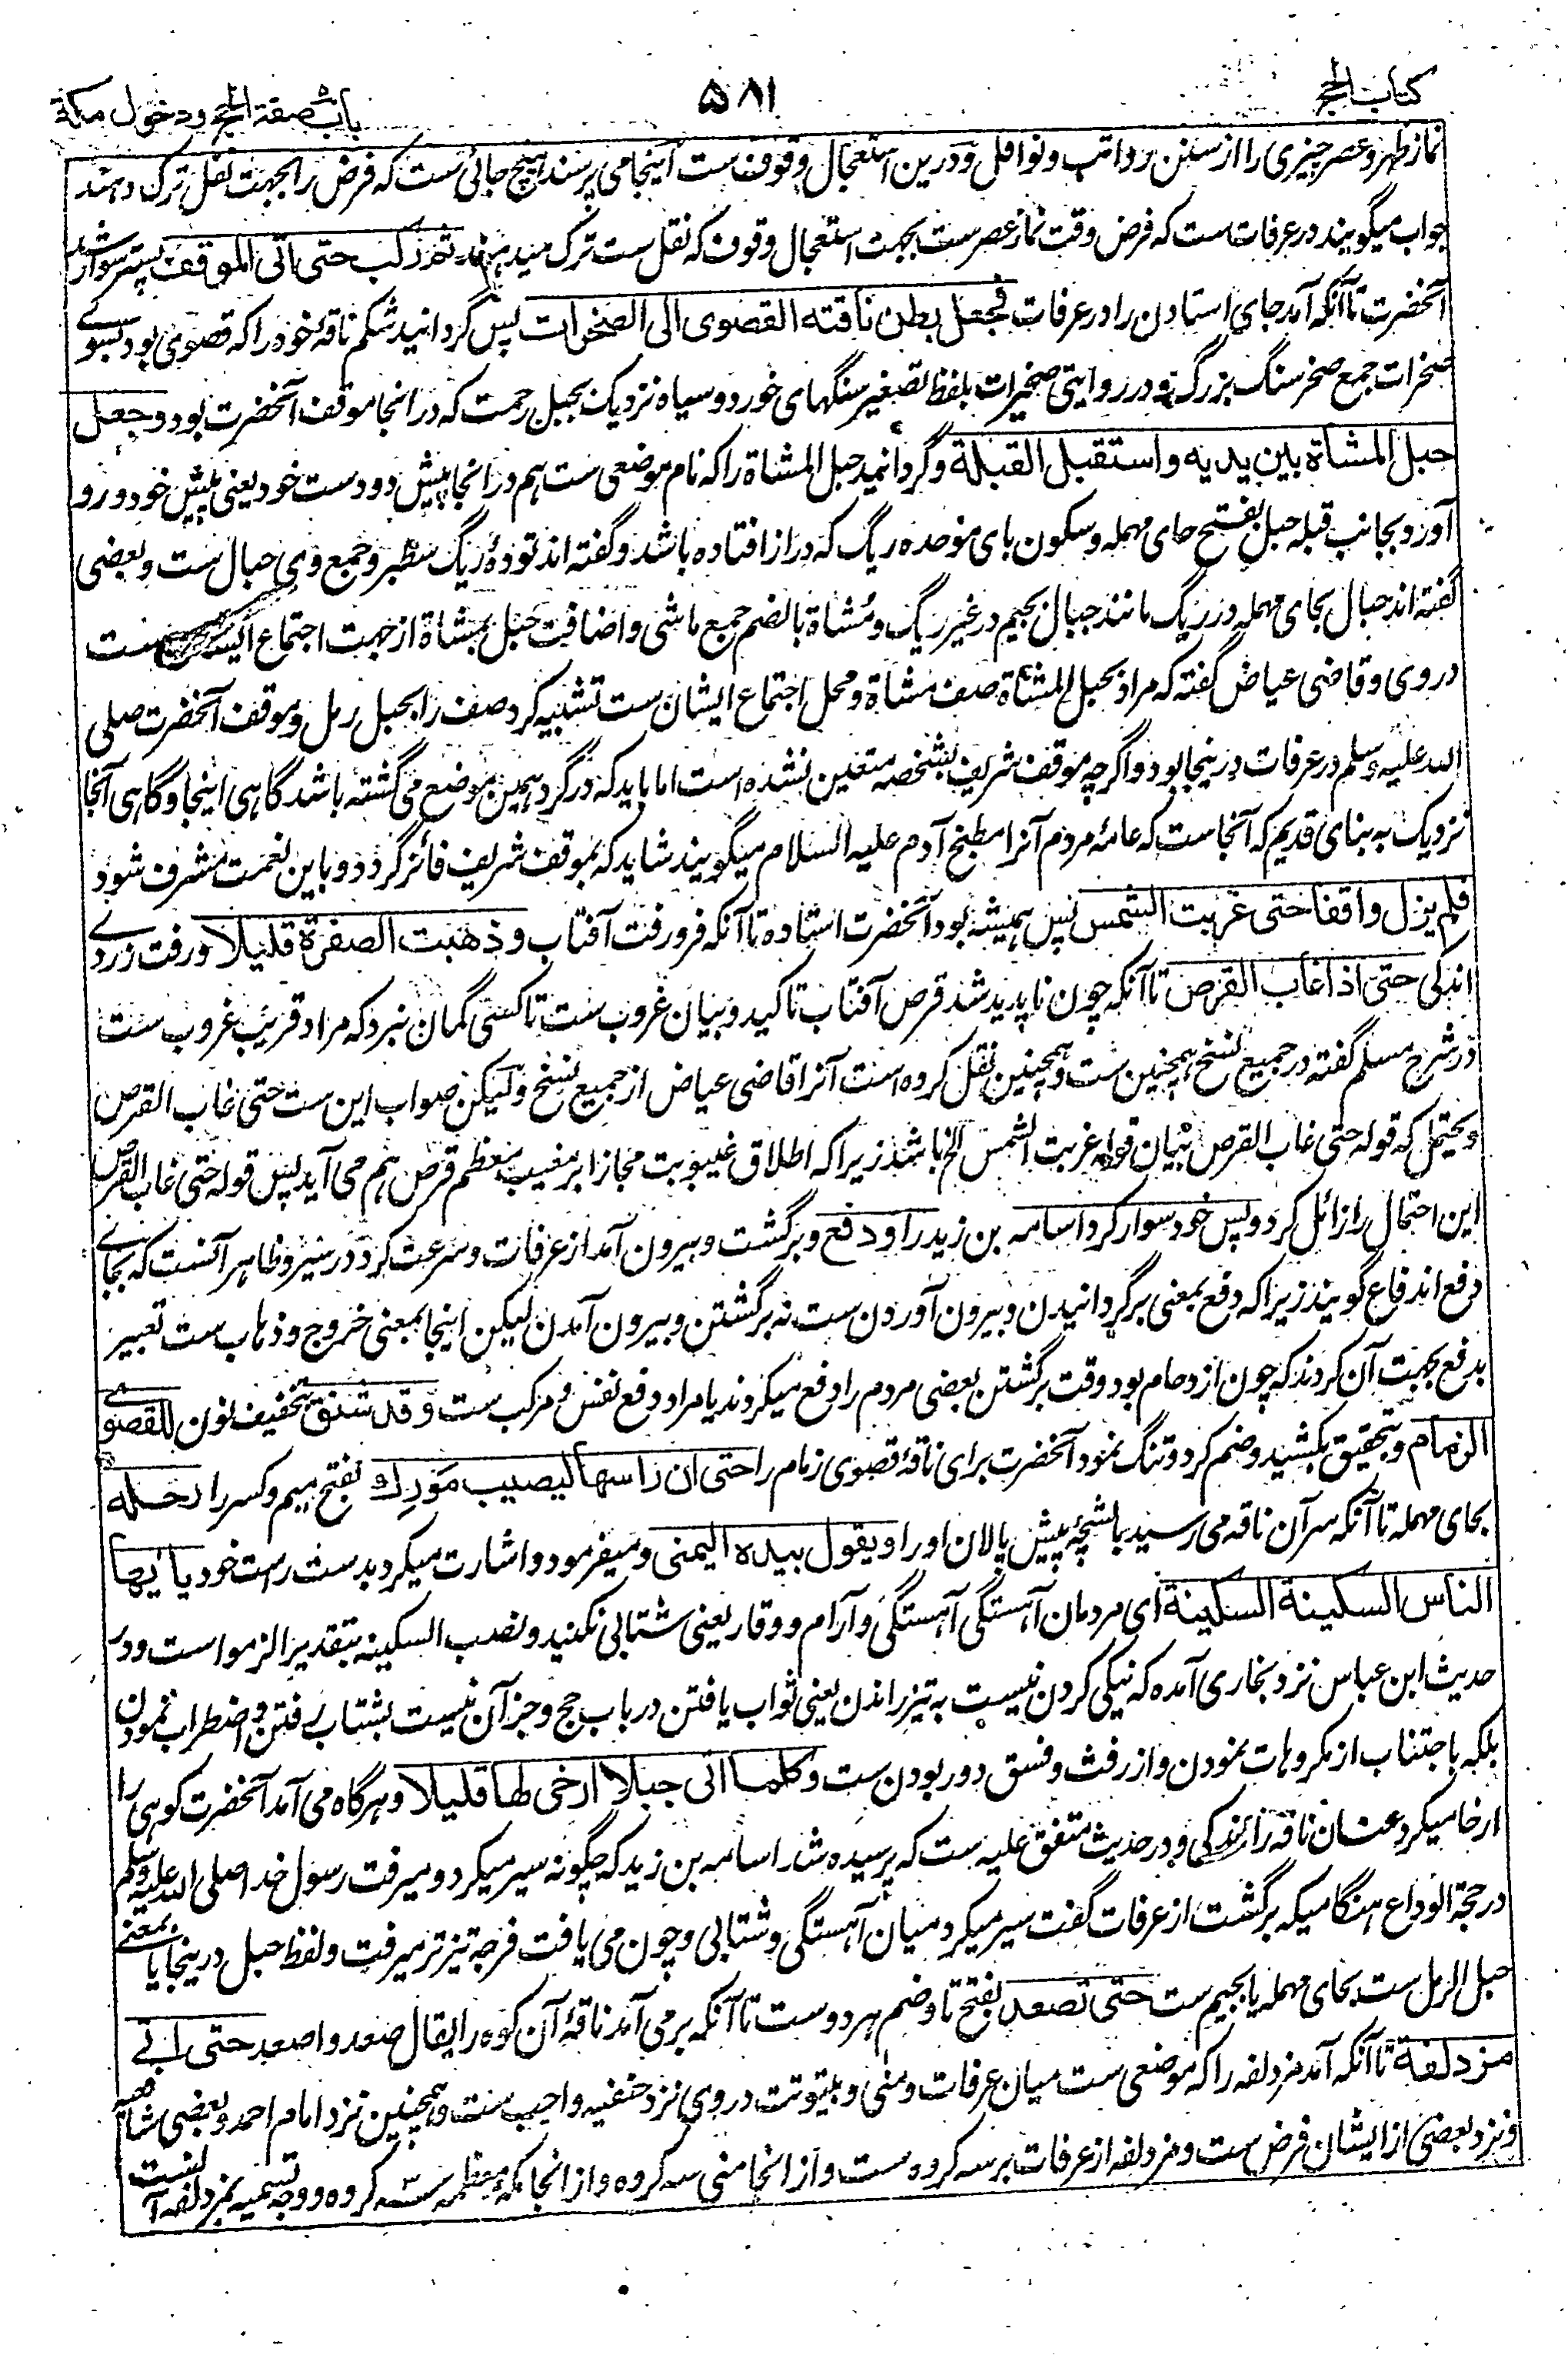 کتاب الحج
۵۸۱
باب صفة الحج ودخول مکة
نماز ظهر و عصر چیزی را از سنن رواتب و نوافل و درین استعجال وقوف ست اینجا می پرسند هیچ جائی ست که فرض را بجهت نفل ترک دهند
جواب میگویند در عرفات ست که فرض وقت نماز عصر ست بجهت استعجال وقوف که نفل ست ترک میدهند ثم رکب حتی اتی الموقف پستر سوار شد
آنحضرت تا آنکه آمد جای استادن را در عرفات فجعل بطن ناقته القصوی الی الصخرات پس گردانید شکم ناقۀ خود را که قصوی بود بسوے
صخرات جمع صخر سنگ بزرگ و در روایتی صخیرات بلفظ تصغیر سنگهای خورد و سیاه نزدیک بجبل رحمت که در انجا موقف آنحضرت بود وجعل
حبل المشاة بین یدیه واستقبل القبلة و گردانید حبل المشاة را که نام موضعی ست هم در انجا پیش دو دست خود یعنی پیش خود و رو
آورد بجانب قبله حبل بفتح حای مهمله و سکون بای موحده ریگ که دراز افتاده باشد و گفته اند تودۀ ریگ سطبر و جمع وی حبال ست و بعضی
گفته اند حبال بحای مهمله در ریگ مانند جبال بجیم در غیر ریگ و مُشاة بالضم جمع ماشی و اضافت حبل بمشاة از جهت اجتماع ایشان ست
در وی و قاضی عیاض گفته که مراد بحبل المشاة صف مشاة و محل اجتماع ایشان ست تشبیه کرد صف را بحبل رمل و موقف آنحضرت صلی
الله علیه وسلم در عرفات درینجا بود و اگرچه موقف شریف بشخصه متعین نشده است اما باید که در گرد همین موضع می گشته باشد گاهی اینجا و گاهی آنجا
نزدیک به بنای قدیم که آنجاست که عامۀ مردم آنرا مطبخ آدم علیه السلام میگویند شاید که بموقف شریف فائز گردد و باین نعمت مشرف شود
فلم یزل واقفا حتی غربت الشمس پس همیشه بود آنحضرت استاده تا آنکه فرو رفت آفتاب وذهبت الصفرة قلیلا و رفت زردے
اندکی حتی اذا غاب القرص تا آنکه چون ناپدید شد قرص آفتاب تاکید و بیان غروب ست تا کسی گمان نبرد که مراد قریب غروب ست
در شرح مسلم گفته در جمیع نسخ همچنین ست و همچنین نقل کرده است آنرا قاضی عیاض از جمیع نسخ ولیکن صواب این ست حتی غاب القرص
و یحتمل که قوله حتی غاب القرص بیان قوله غربت الشمس الخ باشد زیرا که اطلاق غیبوبت مجازا بر مغیب معظم قرص هم می آید پس قوله حتی غاب القرص
این احتمال را زائل کرد و پس خود سوار کرد اسامه بن زید را ودفع و برگشت و بیرون آمد از عرفات و سرعت کرد در سیر و ظاهر آنست که بجاے
دفع اندفاع گویند زیرا که دفع بمعنی برگردانیدن و بیرون آوردن ست نه برگشتن و بیرون آمدن لیکن اینجا بمعنی خروج و ذهاب ست تعبیر
بدفع بجهت آن کردند که چون ازدحام بود وقت برگشتن بعضی مردم را دفع میکردند یا مراد دفع نفس و مرکب ست وقد شنق بتخفیف نون للقصوے
الزمام و بتحقیق بکشید و ضم کرد و تنگ نمود آنحضرت برای ناقۀ قصوی زمام را حتی ان راسها لیصیب مورك بفتح میم و کسر را رحله
بحای مهمله تا آنکه سر آن ناقه می رسید بالشچۀ پیش پالان او را ویقول بیده الیمنی و میفرمود و اشارت میکرد بدست راست خود یا ایها
الناس السکینة السکینة ای مردمان آهستگی آهستگی و آرام و وقار یعنی شتابی نکنید و نصب السکینه بتقدیر الزموا ست و در
حدیث ابن عباس نزد بخاری آمده که نیکی کردن نیست به تیز راندن یعنی ثواب یافتن در باب حج و جز آن نیست بشتاب رفتن و اضطراب نمودن
بلکه باجتناب از مکروهات نمودن و از رفث و فسق دور بودن ست وکلما اتی حبلا ارخی لها قلیلا و هرگاه می آمد آنحضرت کوهی را
ارخا میکرد عنان ناقه را اندکی و در حدیث متفق علیه ست که پرسیده شد اسامه بن زید که چگونه سیر میکرد و میرفت رسول خدا صلی الله علیه وسلم
در حجة الوداع هنگامیکه برگشت از عرفات گفت سیر میکرد میان آهستگی و شتابی و چون می یافت فرجه تیزتر میرفت و لفظ حبل درینجا یا بمعنے
حبل الرمل ست بحای مهمله یا بجیم ست حتی تصعد بفتح تا و ضم هر دو ست تا آنکه برمی آمد ناقۀ آن کوه را یقال صعد واصعد حتی اتے
مزدلفة تا آنکه آمد مزدلفه را که موضعی ست میان عرفات و منٰی و بیتوتت در وی نزد حنفیه واجب ست و همچنین نزد امام احمد و بعضی شافعیه
و نزد بعضی از ایشان فرض ست و مزدلفه از عرفات بر سه کروه ست و از انجا منی سه کروه و از انجا مکۀ معظمه سه کروه و وجه تسمیه بمزدلفه آنست